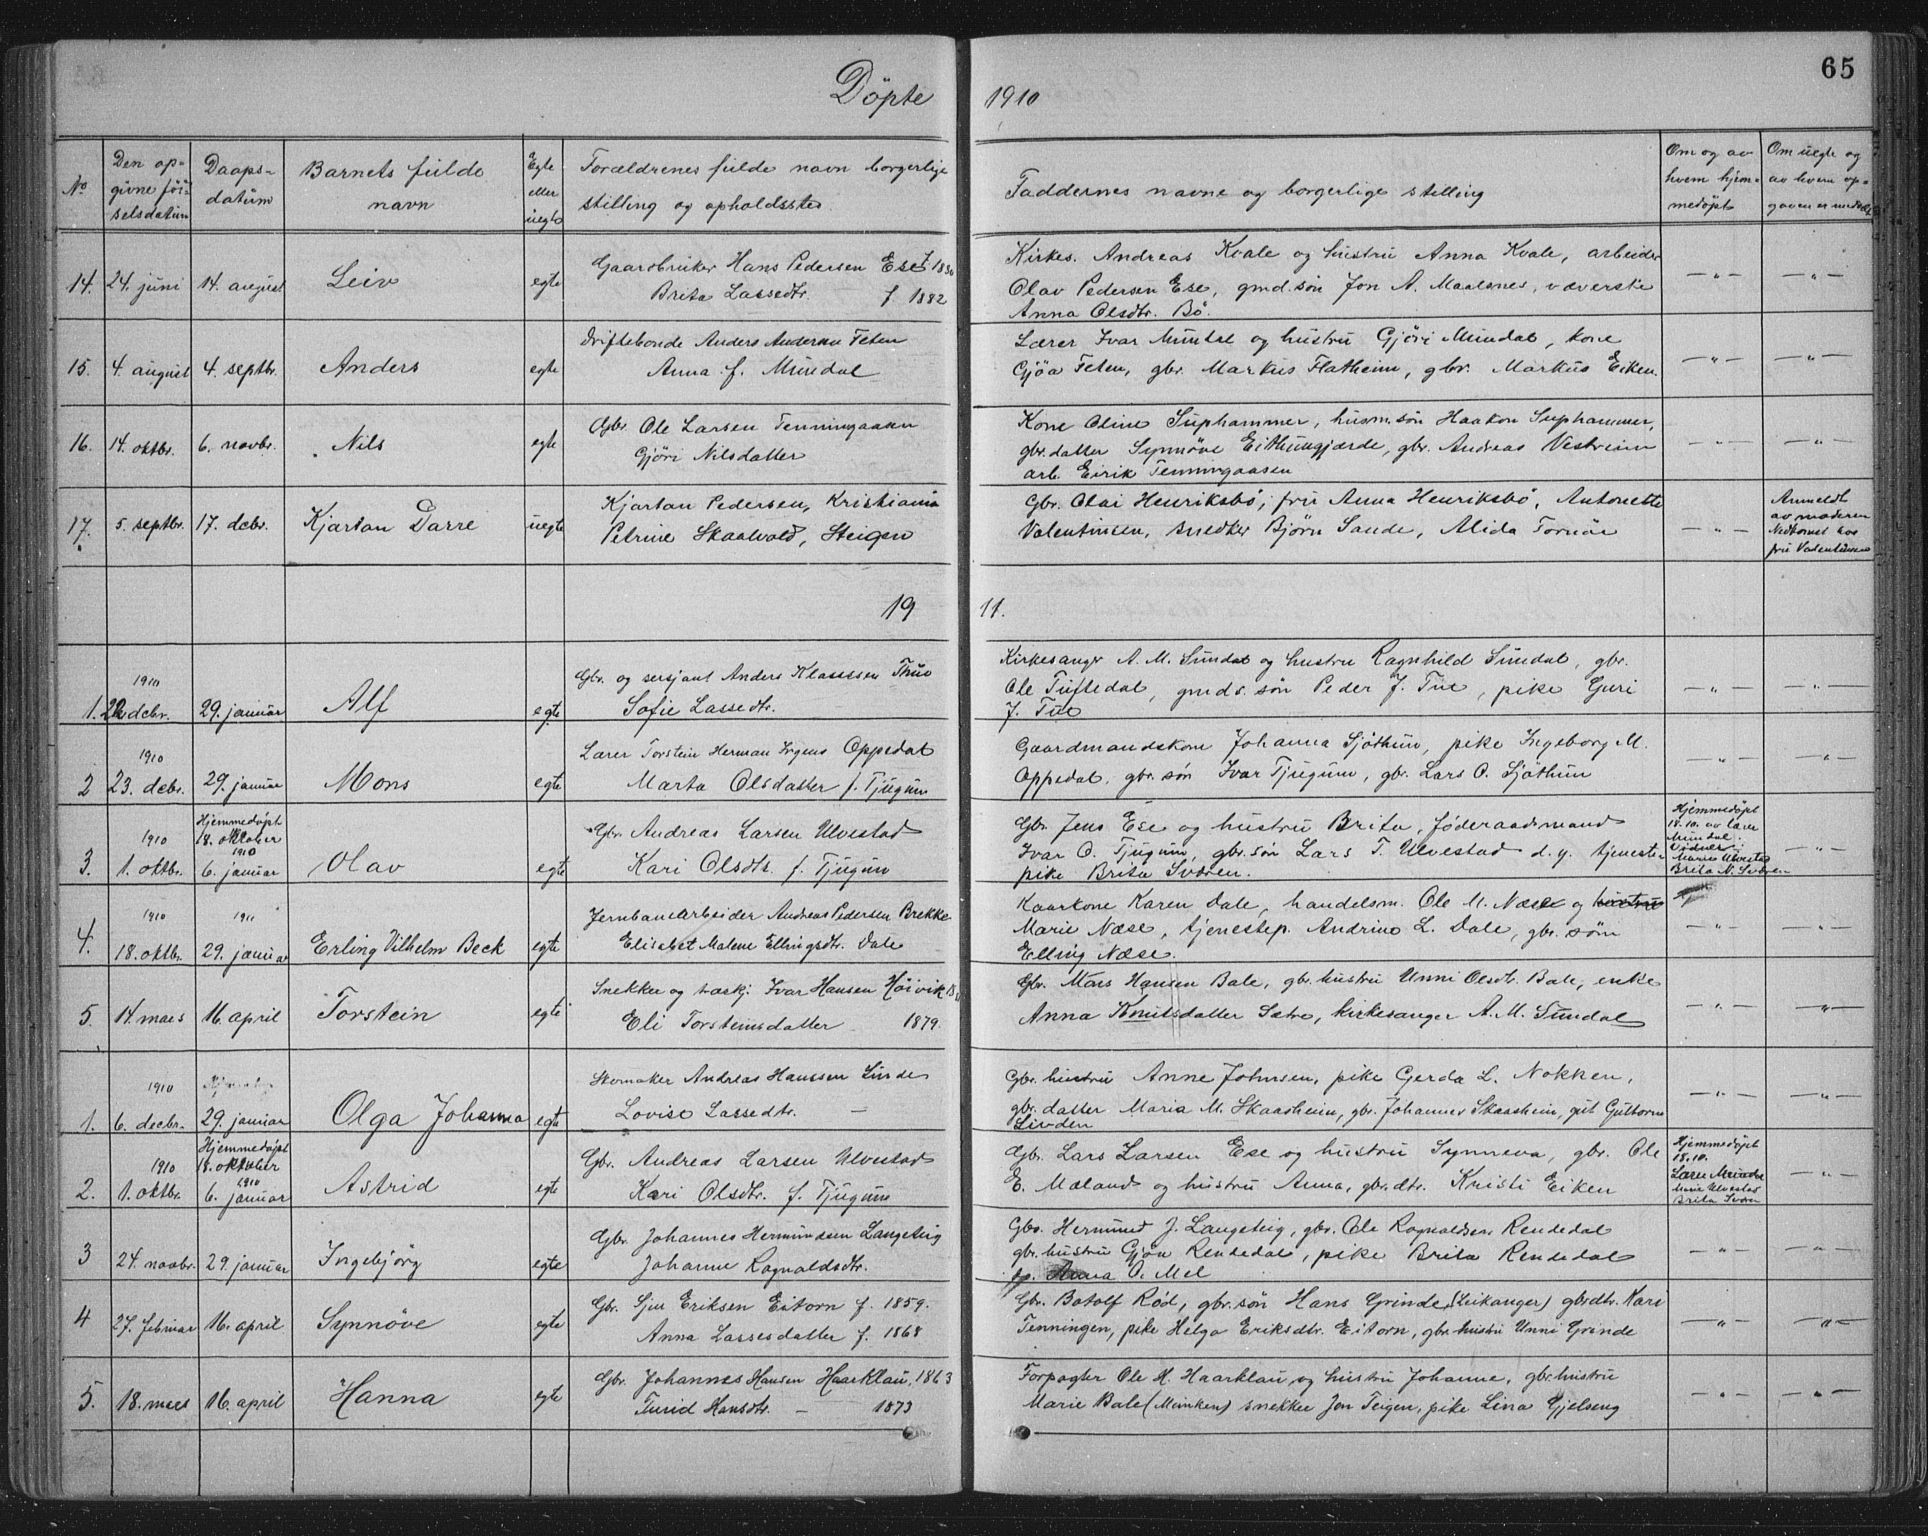 65
Döpte 1910
No
Den opgivne föiselsdatum
Daapsdatum
Barnets fulde navn
Egte eller uegte
Forældrenes fulde navn borgerlige stilling og opholdssted
Faddernes navne og borgerlige stilling
Om og av hvem hjemmedöpt
Om uegte og av hvem opgaven er
14. 24. juni 14. august Leiv egte
Gaardbruker Hans Pedersen Ese f. 1880
Brita Lassedtr. f 1882
Kirkes. Andreas Kvale og hustru Anna Kvale, arbeider
Olav Pedersen Ese, gmd. sön Jon A. Maalsnes, væverske
Anna Olsdtr. Bö.
15. 4. august 4. septbr. Anders egte
Driftebonde Anders Andersen Feten
Anna f. Mundal
Lærer Ivar Mundal og hustru Gjöri Mundal, kone
Gjöa Feten, gbr. Markus Flatheim, gbr. Markus Eiken.
16. 14. oktbr. 6. novbr. Nils egte
Gbr. Ole Larsen Tenningaasen
Gjöri Nilsdatter
Kone Oline Suphammer, husm. sön Haakon Suphammer,
gbr. datter Synnöve Eithungjærde, gbr. Andreas Vestreim
arb. Eirik Tenningaasen
17. 5. septbr. 17. debr. Kjartan Darre uegte
Kjartan Pedersen, Kristiania
Petrine Skaalvold, Steigen
Gbr. Olai Henriksbö, fru Anna Henriksbö, Antonette
Valentinsen, snedker Björn Sande, Alida Tornöe
Anmeldt
av moderen
Nedkomst hos
fru Valentinsen
1911.
1910
1. 22 decbr. 29. januar Alf egte
Gbr. og sersjant Anders Klasessen Thue
Sofie Lassedtr.
Kirkesanger A. M. Sundal og hustru Ragnhild Sundal, gbr.
Ole Tuftedal, gmds. sön Peder J. Tue, pike Guri
J. Tue
1910
2 23. decbr. 29. januar Mons egte
Lærer Torstein Herman Irgens Oppedal
Marta Olsdatter f. Tjugum
Gaardmandskone Johanna Sjöthun, pike Ingeborg M.
Oppedal, gbr. sön Ivar Tjugum, gbr. Lars O. Sjöthun
1910 Hjemmedöpt 18. oktober 1910
3. 1. oktbr. 6. januar Olav egte
Gbr. Andreas Larsen Ulvestad
Kari Olsdtr. f. Tjugum
Gbr. Jens Ese og hustru Brita, föderaadsmand
Ivar O. Tjugum, gbr. sön Lars T. Ulvestad d. y. tjeneste-
pike Brita Sværen.
Hjemmedöpt
18.10. av lærer
Mundal.
Vidner:
Marie Ulvestad
Brita N. Sværen
1910 1911
4. 18. oktbr. 29. januar Erling Vilhelm Beck egte
Jernbanearbeider Andreas Pedersen Brekke
Elisabet Malene Ellingsdtr. Dale
Kaarkone Karen Dale, handelsm. Ole M. Næse og hustru
Marie Næse, tjenestep. Andrine L. Dale, gbr. sön
Elling Næse.
5. 14. mars 16. april Torstein egte
Snekker og Ivar Hansen Höivik
Eli Torsteinsdatter 1879.
Gbr. Mons Hansen Bale, gbr. hustru Unni Olsdtr. Bale, enke
Anna Knutsdatter Sætre, kirkesanger A. M. Sundal
1910
1. 6. decbr. 29. januar Olga Johanna egte
Skomaker Andreas Hanssen Linde
Lovise Lassedtr. —
Gbr. hustru Anne Johnsen, pike Gerda L. Nokken,
gbr. datter Maria M. Skaasheim, gbr. Johannes Skaasheim, gut Guttorm
Linden
1910 Hjemmedöpt 18. oktober 1910
2. 1. oktbr. 6. januar Astrid egte
Gbr. Andreas Larsen Ulvestad
Kari Olsdtr. f. Tjugum
Gbr. Lars Larsen Ese og hustru Synneva, gbr. Ole
E. Mæland og hustru Anna, gbr. dtr. Kristi Eiken
Hjemmedöpt
18.10.
Lærer Mundal
Marie Ulvestad
Brita Sværen
3 24. novbr. 29. januar Ingebjörg egte
Gbr. Johannes Hermundsen Langeteig
Johanne Ragnaldsdtr.
Gbr. Hermund J. Langeteig, gbr. Ole Ragnaldsen Rendedal
gbr. hustru Gjöa Rendedal, pike Brita Rendedal
Anna O. Mel
4 27. februar 16. april Synnöve egte
Gbr. Sjur Eriksen Eitorn f. 1859.
Anna Lassesdatter f. 1868
Gbr. Botolf Röd, gbr. sön Hans Grinde, (Leikanger) gbrdtr. Kari
Tenningen, pike Helga Eriksdtr. Eitorn, gbr. hustru Unni Grinde
5. 18. mars 16. april Hanna egte
Gbr. Johannes Hansen Haarklau, 1863
Turid Hansdtr. — 1873
Forpagter Ole H. Haarklau og hustru Johanne, gbr. hustru
Marie Bale (Munken) snekker Jon Teigen, pike Lina Gjelseng